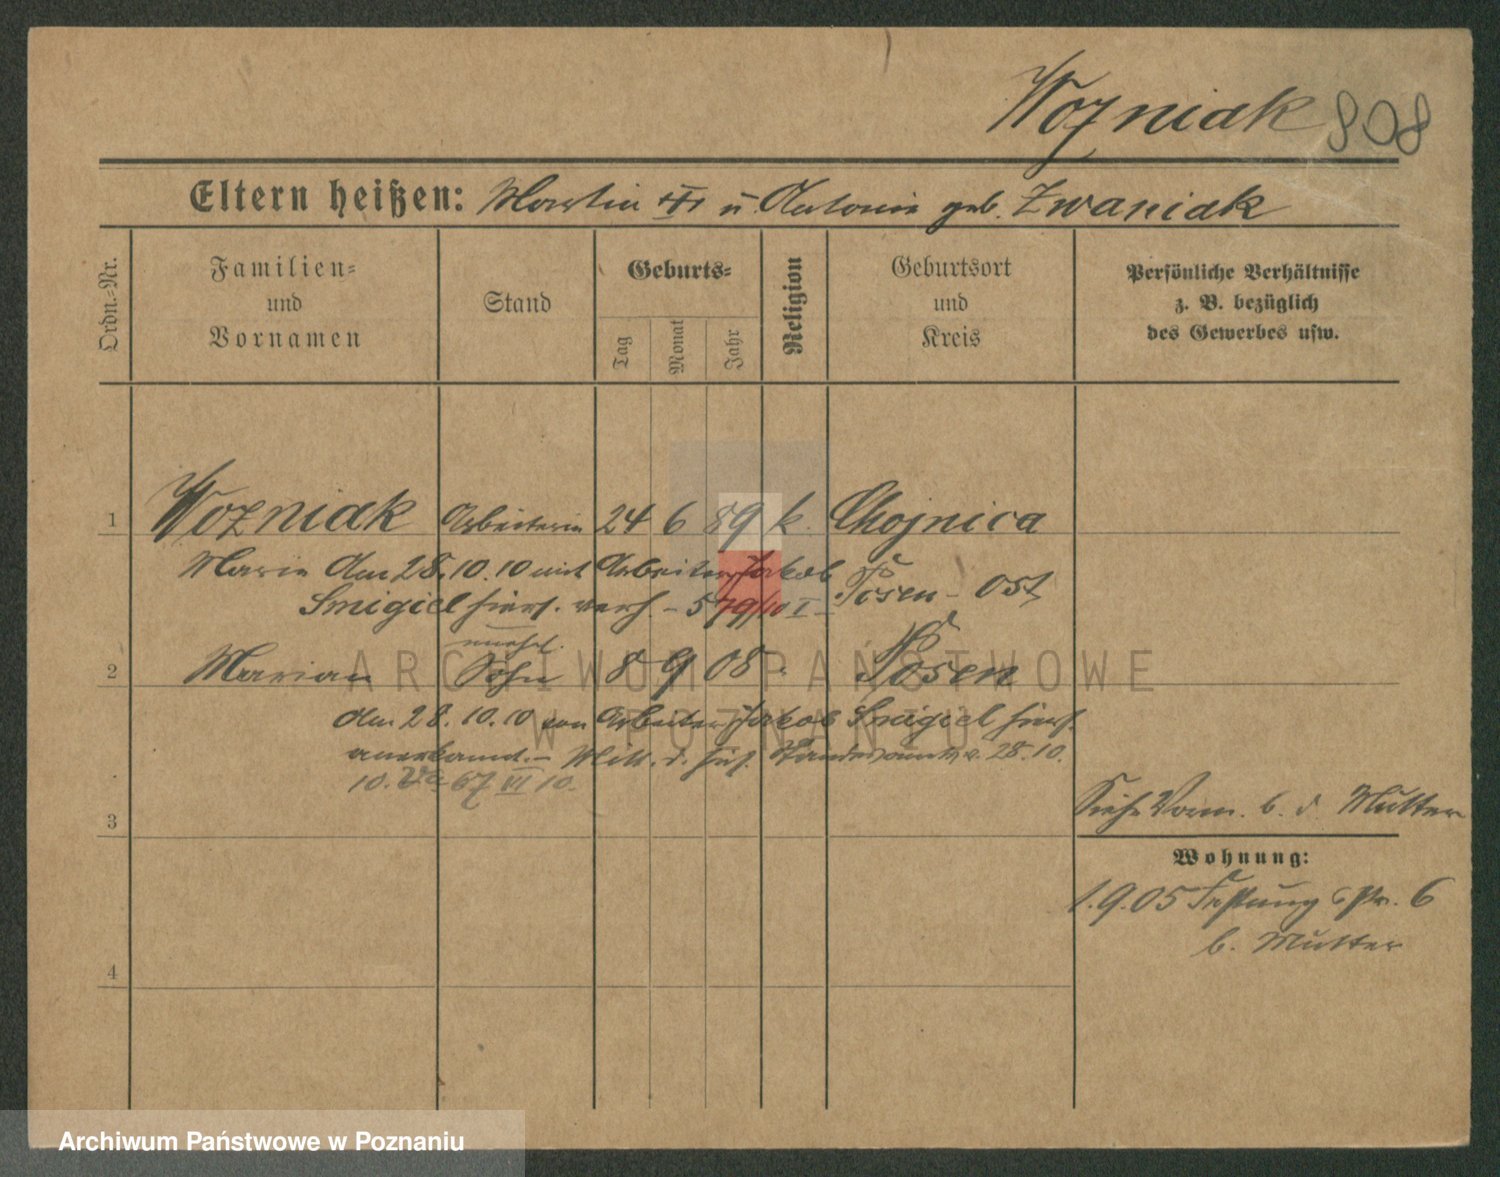 Wozniak 808
Eltern heißen: Martin u. Antonie geb. Zwaniak
Ordn.-Nr.
Familien- und Vornamen
Stand
Geburts-
Tag
Monat
Jahr
Religion
Geburtsort und Kreis
Persönliche Verhältnisse
z. B. bezüglich
des Gewerbes usw.
1 Wozniak Arbeiterin 24 6 89 k. Chojnica
Marie Am 28.10.10 mit Arbeiter Jakob Posen-Ost
Smigiel hiers. verh. - 579/10 I -
unehel.
2 Marian Sohn 8 9 08 Posen
Am 28.10.10 von Arbeiter Jakob Smigiel hiers.
anerkannt. - Mitt. d. hies. Standesamts v. 28.10.
10. 67 VI 10.
3
Siehe Vorm. b. d. Mutter
Wohnung:
1.9.05 Festung Str. 6
b. Mutter
4
ARCHIWUM PAŃSTWOWE
W POZNANIU
Archiwum Państwowe w Poznaniu